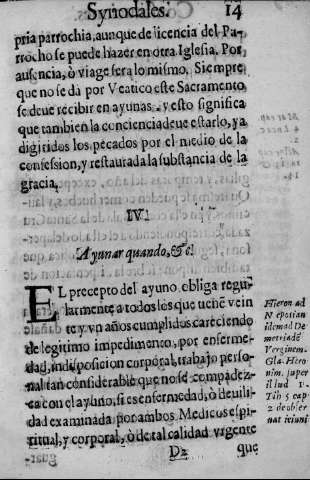 Synodales. 14
pria parrochia, aunque de licencia del Pa-
rrocho se puede hazer en otra Iglesia. Por
ausencia, ò viage sera lo mismo. Siempre
que no se dà por Veatico este Sacramento
se deve recibir en ayunas. y esto significa
que tambien la conciencia deve estarlo, ya
digiridos los pecados por el medio de la
confession, y restaurada la substancia de la
gracia.
IV.
Ayunar quando, &c.
EL precepto del ayuno obliga regu-
larmente a todos los que tienẽ vein
te y vn años cumplidos careciendo
de legitimo impedimento, por enferme-
dad, indisposicion corporal, trabajo perso-
nal tan considerable que no se compadez-
ca con el ayuno, si es enfermedad, ò devili-
dad examinada por ambos Medicos espi-
ritual, y corporal, ò de tal calidad urgente
D2 que
Hieron ad
Nepotian
idem ad De
metriadẽ
Verginem.
Gla. Hero
nim. super
illud 1.
Tih 5 cap
2 de obser
nat ieiuni